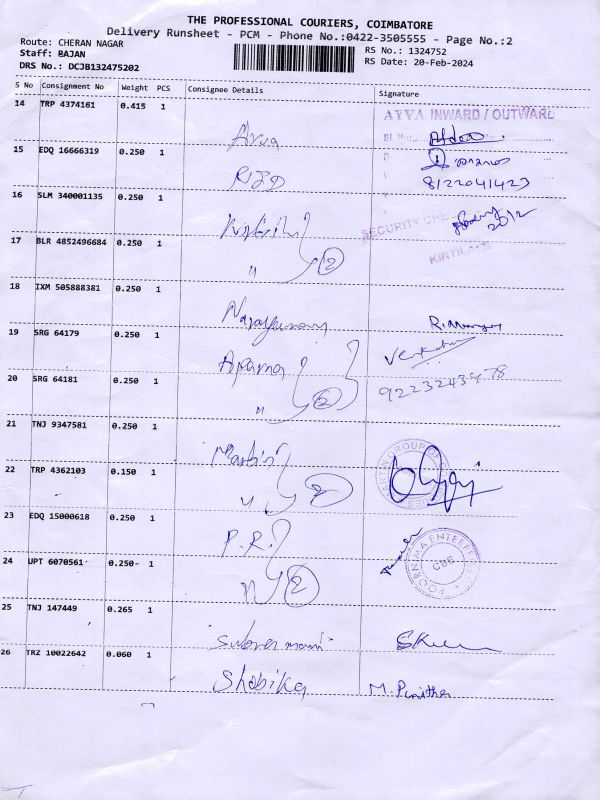 THE PROFESSIONAL COURIERS, COIMBATORE
Delivery Runsheet - PCM - Phone No.:0422-3505555 - Page No.:2
Route: CHERAN NAGAR
RS No.: 1324752
Staff: BAJAN
RS Date: 20-Feb-2024
DRS No.: DCJB132475202
S No Consignment No Weight PCS Consignee Details Signature
14 TRP 4374161 0.415 1
INWARD / OUTWARD
15 EDQ 16666319 0.250 1
8122041423
16 SLM 340001135 0.250 1
SECURITY
2012
17 BLR 4852496684 0.250 1
" 2
18 IXM 505888381 0.250 1
Narayanan
19 SRG 64179 0.250 1
Aparna
20 SRG 64181 0.250 1
" 2
21 TNJ 9347581 0.250 1
GROUP OF
22 TRP 4362103 0.150 1
" 2
23 EDQ 15000618 0.250 1
P.R.
POORNIMA ENTERPRISES
CBE
24 UPT 6070561 0.250 1
" 2
25 TNJ 147449 0.265 1
26 TRZ 10022642 0.060 1
Shobika M. Punitha